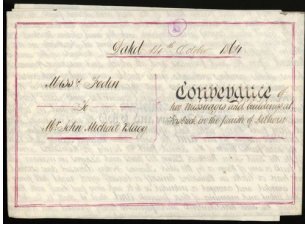 Dated 14th October 1864
Mess.rs Foden
To
Mr John Michael Blagg
Conveyance of
two messuages and buildings at
in the parish of